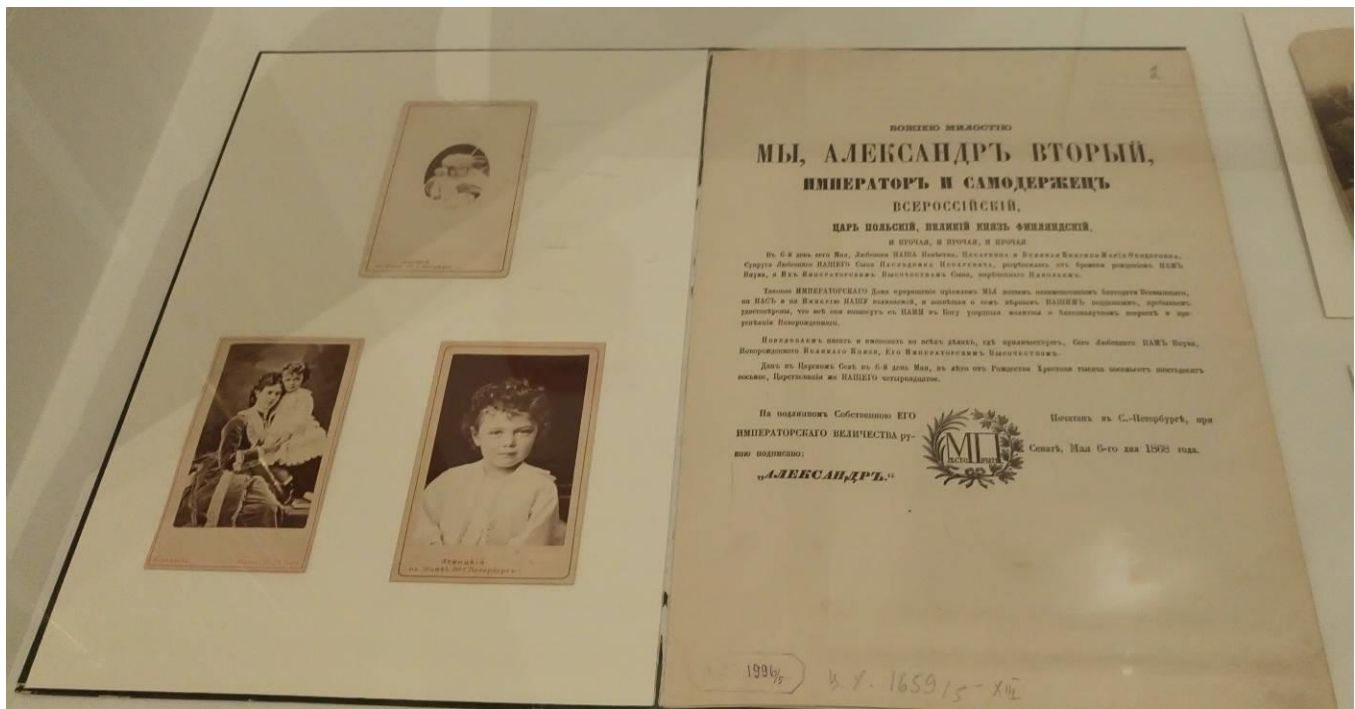 ЛЕВИЦКІЙ
2
БОЖІЕЮ МИЛОСТІЮ
МЫ, АЛЕКСАНДРЪ ВТОРЫЙ,
ИМПЕРАТОРЪ И САМОДЕРЖЕЦЪ
ВСЕРОССІЙСКІЙ,
ЦАРЬ ПОЛЬСКІЙ, ВЕЛИКІЙ КНЯЗЬ ФИНЛЯНДСКІЙ,
И ПРОЧАЯ, И ПРОЧАЯ, И ПРОЧАЯ
Въ 6-й день сего Мая, Любезная НАША Невѣстка, Цесаревна и Великая Княгиня Марія Ѳеодоровна,
Супруга Любезнаго НАШЕГО Сына Наслѣдника Цесаревича, разрѣшилась отъ бремени рожденіемъ НАМЪ
Внука, а Ихъ Императорскимъ Высочествамъ Сына, нареченнаго Николаемъ.
Таковое ИМПЕРАТОРСКАГО Дома приращеніе пріемля МЫ новымъ ознаменованіемъ благодати Всевышняго,
на НАСЪ и на Имперію НАШУ изливаемой, и возвѣщая о семъ вѣрнымъ НАШИМЪ подданнымъ, пребываемъ
удостовѣрены, что всѣ они вознесутъ съ НАМИ къ Богу усердныя молитвы о благополучномъ возрастѣ и пре-
успѣяніи Новорожденнаго.
Повелѣваемъ писать и именовать во всѣхъ дѣлахъ, гдѣ приличествуетъ, сего Любезнаго НАМЪ Внука,
Новорожденнаго Великаго Князя, Его Императорскимъ Высочествомъ.
Данъ въ Царскомъ Селѣ въ 6-й день Мая, въ лѣто отъ Рождества Христова тысяча восемьсотъ шестьдесятъ
восьмое, Царствованія же НАШЕГО четырнадцатое.
На подлинномъ Собственною ЕГО
ИМПЕРАТОРСКАГО ВЕЛИЧЕСТВА ру-
кою подписано:
„АЛЕКСАНДРЪ.“
МП
МѢСТО ПЕЧАТИ
Печатанъ въ С.-Петербургѣ, при
Сенатѣ, Мая 6-го дня 1868 года.
ЛЕВИЦКІЙ
1996/5
1659/5 - XIII